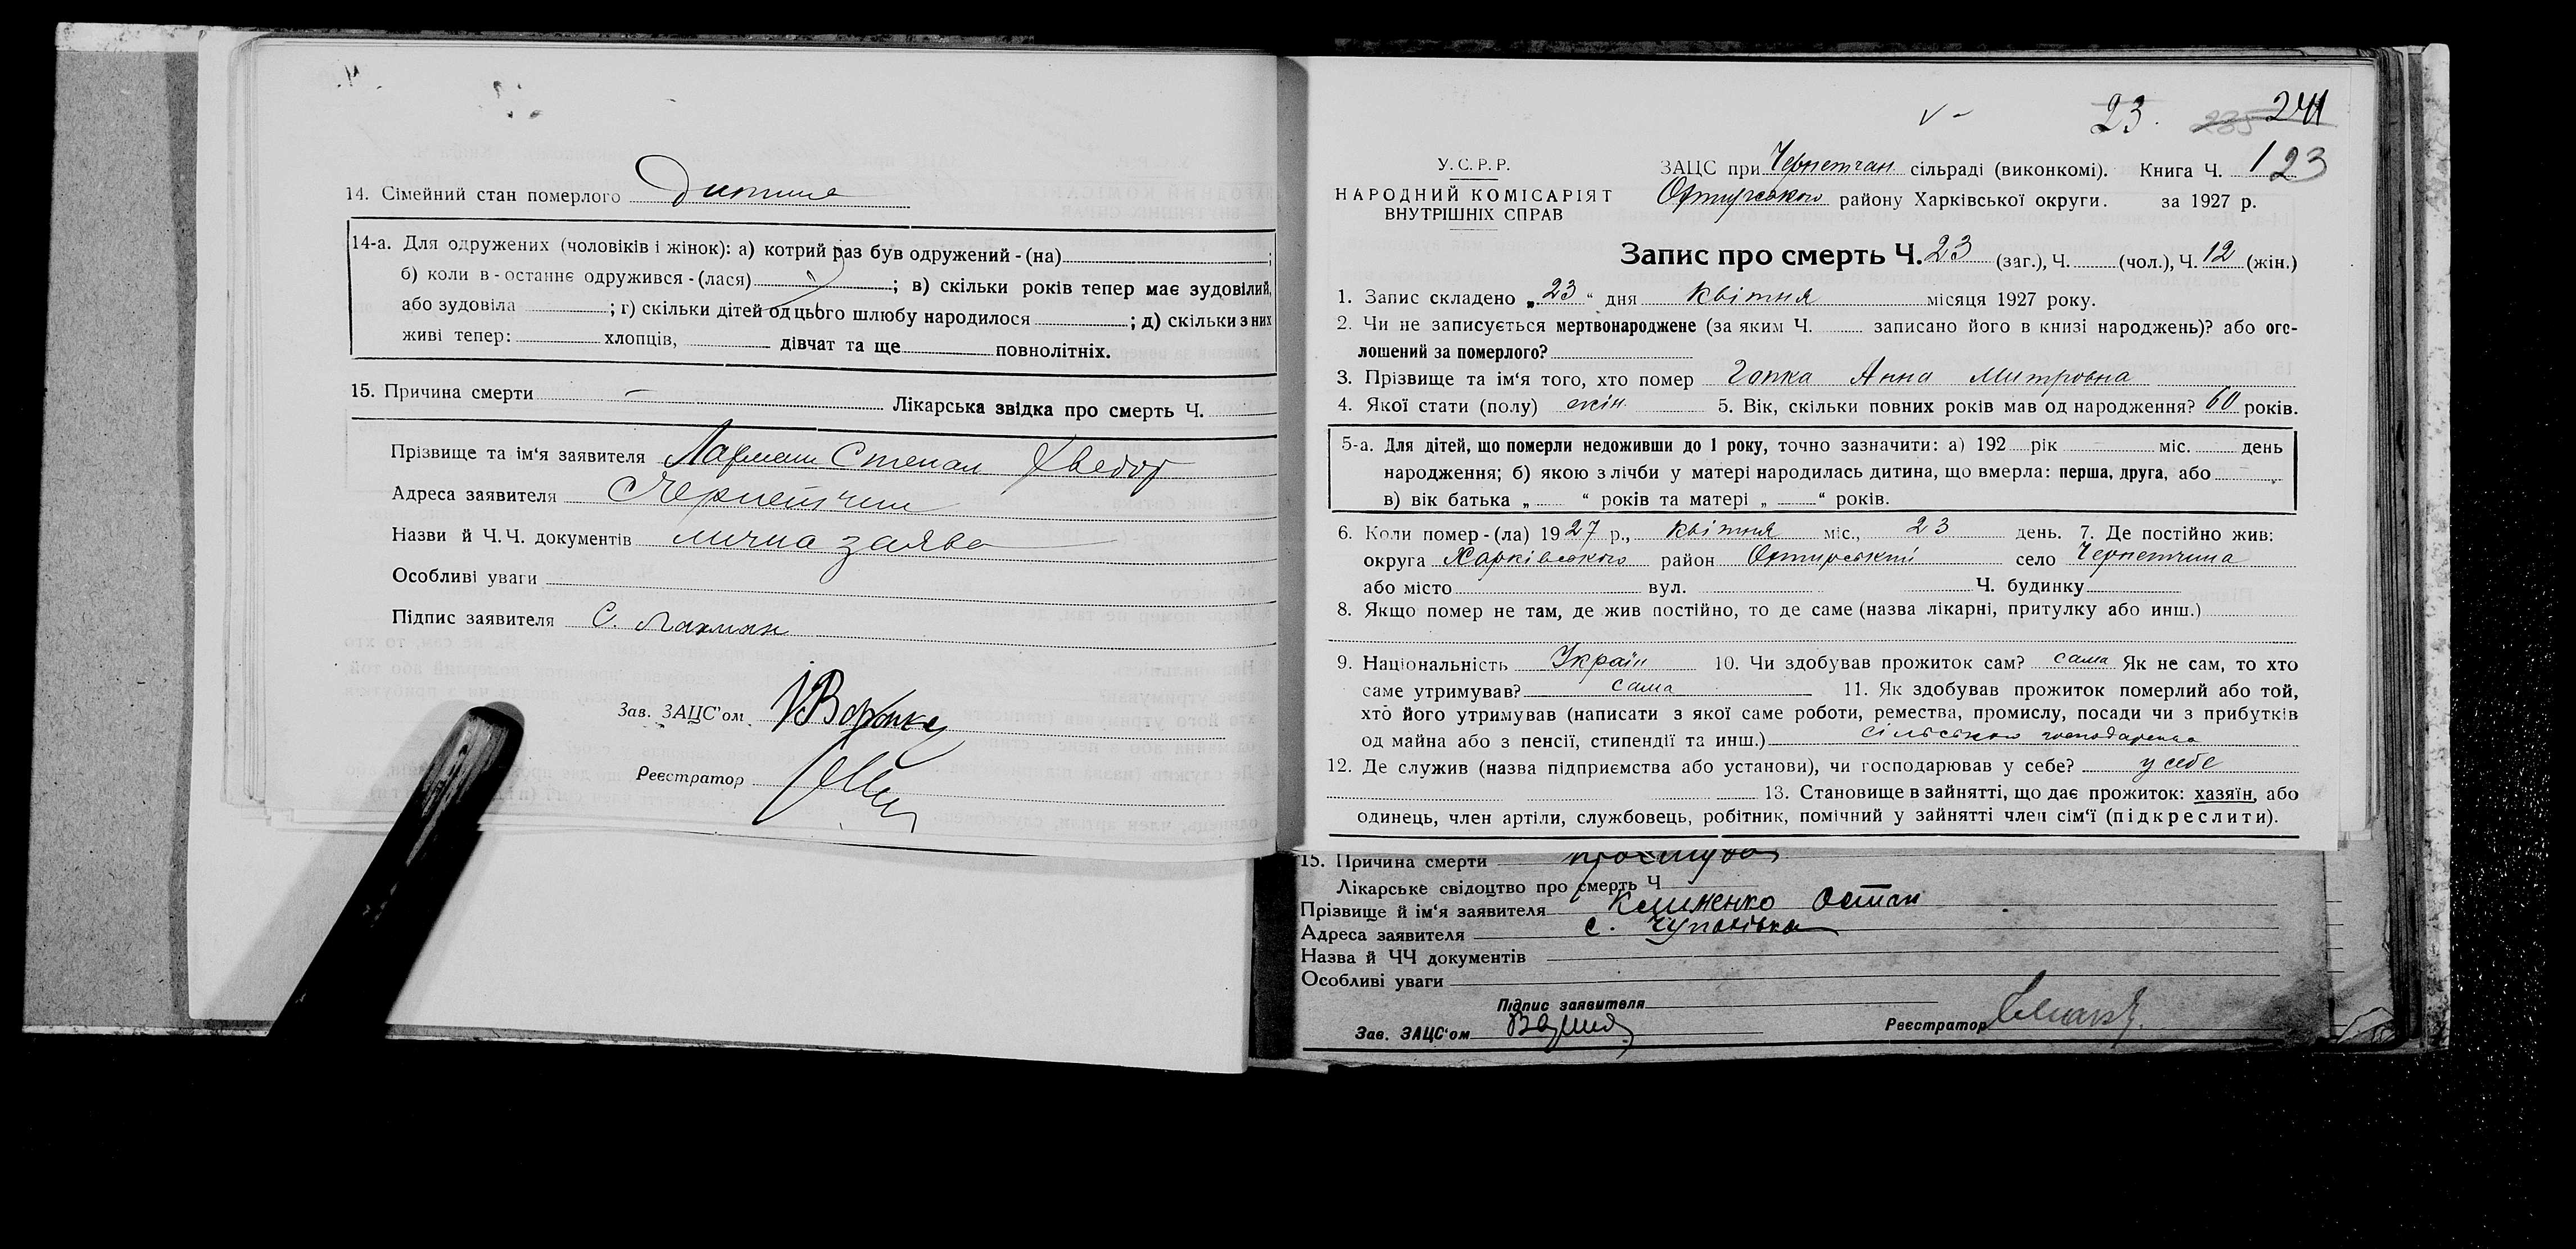 14. Сімейний стан померлого дитина
14-а. Для одружених (чоловіків і жінок): а) котрий раз був одружений - (на) ;
б) коли в - останнє одружився - (лася) ; в) скільки років тепер має зудовілий,
або зудовіла ; г) скільки дітей од цього шлюбу народилося ; д) скільки з них
живі тепер: хлопців, дівчат та ще повнолітніх.
15. Причина смерти — Лікарська звідка про смерть Ч.
Прізвище та ім'я заявителя Степан Хведор
Адреса заявителя
Назви й Ч. Ч. документів лична заява
Особливі уваги
Підпис заявителя С.
Зав. ЗАЦС'ом
Реєстратор
23. 235 241
У. С. Р. Р. ЗАЦС при Чернетчан сільраді (виконкомі). Книга Ч. 1 23
НАРОДНИЙ КОМІСАРІЯТ
ВНУТРІШНІХ СПРАВ
району Харківської округи. за 1927 р.
Запис про смерть Ч. 23 (заг.), Ч. (чол.), Ч. 12 (жін.)
1. Запис складено „ 23 “ дня квітня місяця 1927 року.
2. Чи не записується мертвонароджене (за яким Ч. записано його в книзі народжень)? або ого-
лошений за померлого?
3. Прізвище та ім'я того, хто помер Гапка Анна Митровна
4. Якої стати (полу) жін. 5. Вік, скільки повних років мав од народження? 60 років.
5-а. Для дітей, що померли недоживши до 1 року, точно зазначити: а) 192 рік міс. день
народження; б) якою з лічби у матері народилась дитина, що вмерла: перша, друга, або
в) вік батька „ “ років та матері „ “ років.
6. Коли помер - (ла) 1927 р., квітня міс., 23 день. 7. Де постійно жив:
округа Харківського район село Чернетчина
або місто вул. Ч. будинку
8. Якщо помер не там, де жив постійно, то де саме (назва лікарні, притулку або инш.)
9. Національність Україн 10. Чи здобував прожиток сам? сама Як не сам, то хто
саме утримував? сама 11. Як здобував прожиток померлий або той,
хто його утримував (написати з якої саме роботи, ремества, промислу, посади чи з прибутків
од майна або з пенсії, стипендії та инш.)
12. Де служив (назва підприємства або установи), чи господарював у себе? у себе
13. Становище в зайнятті, що дає прожиток: хазяїн, або
одинець, член артіли, службовець, робітник, помічний у зайнятті член сім'ї (підкреслити).
15. Причина смерти
Лікарське свідоцтво про смерть Ч
Прізвище й ім'я заявителя Клименко Остап
Адреса заявителя с. Чупахівка
Назва й ЧЧ документів
Особливі уваги
Підпис заявителя
Зав. ЗАЦС'ом Реєстратор